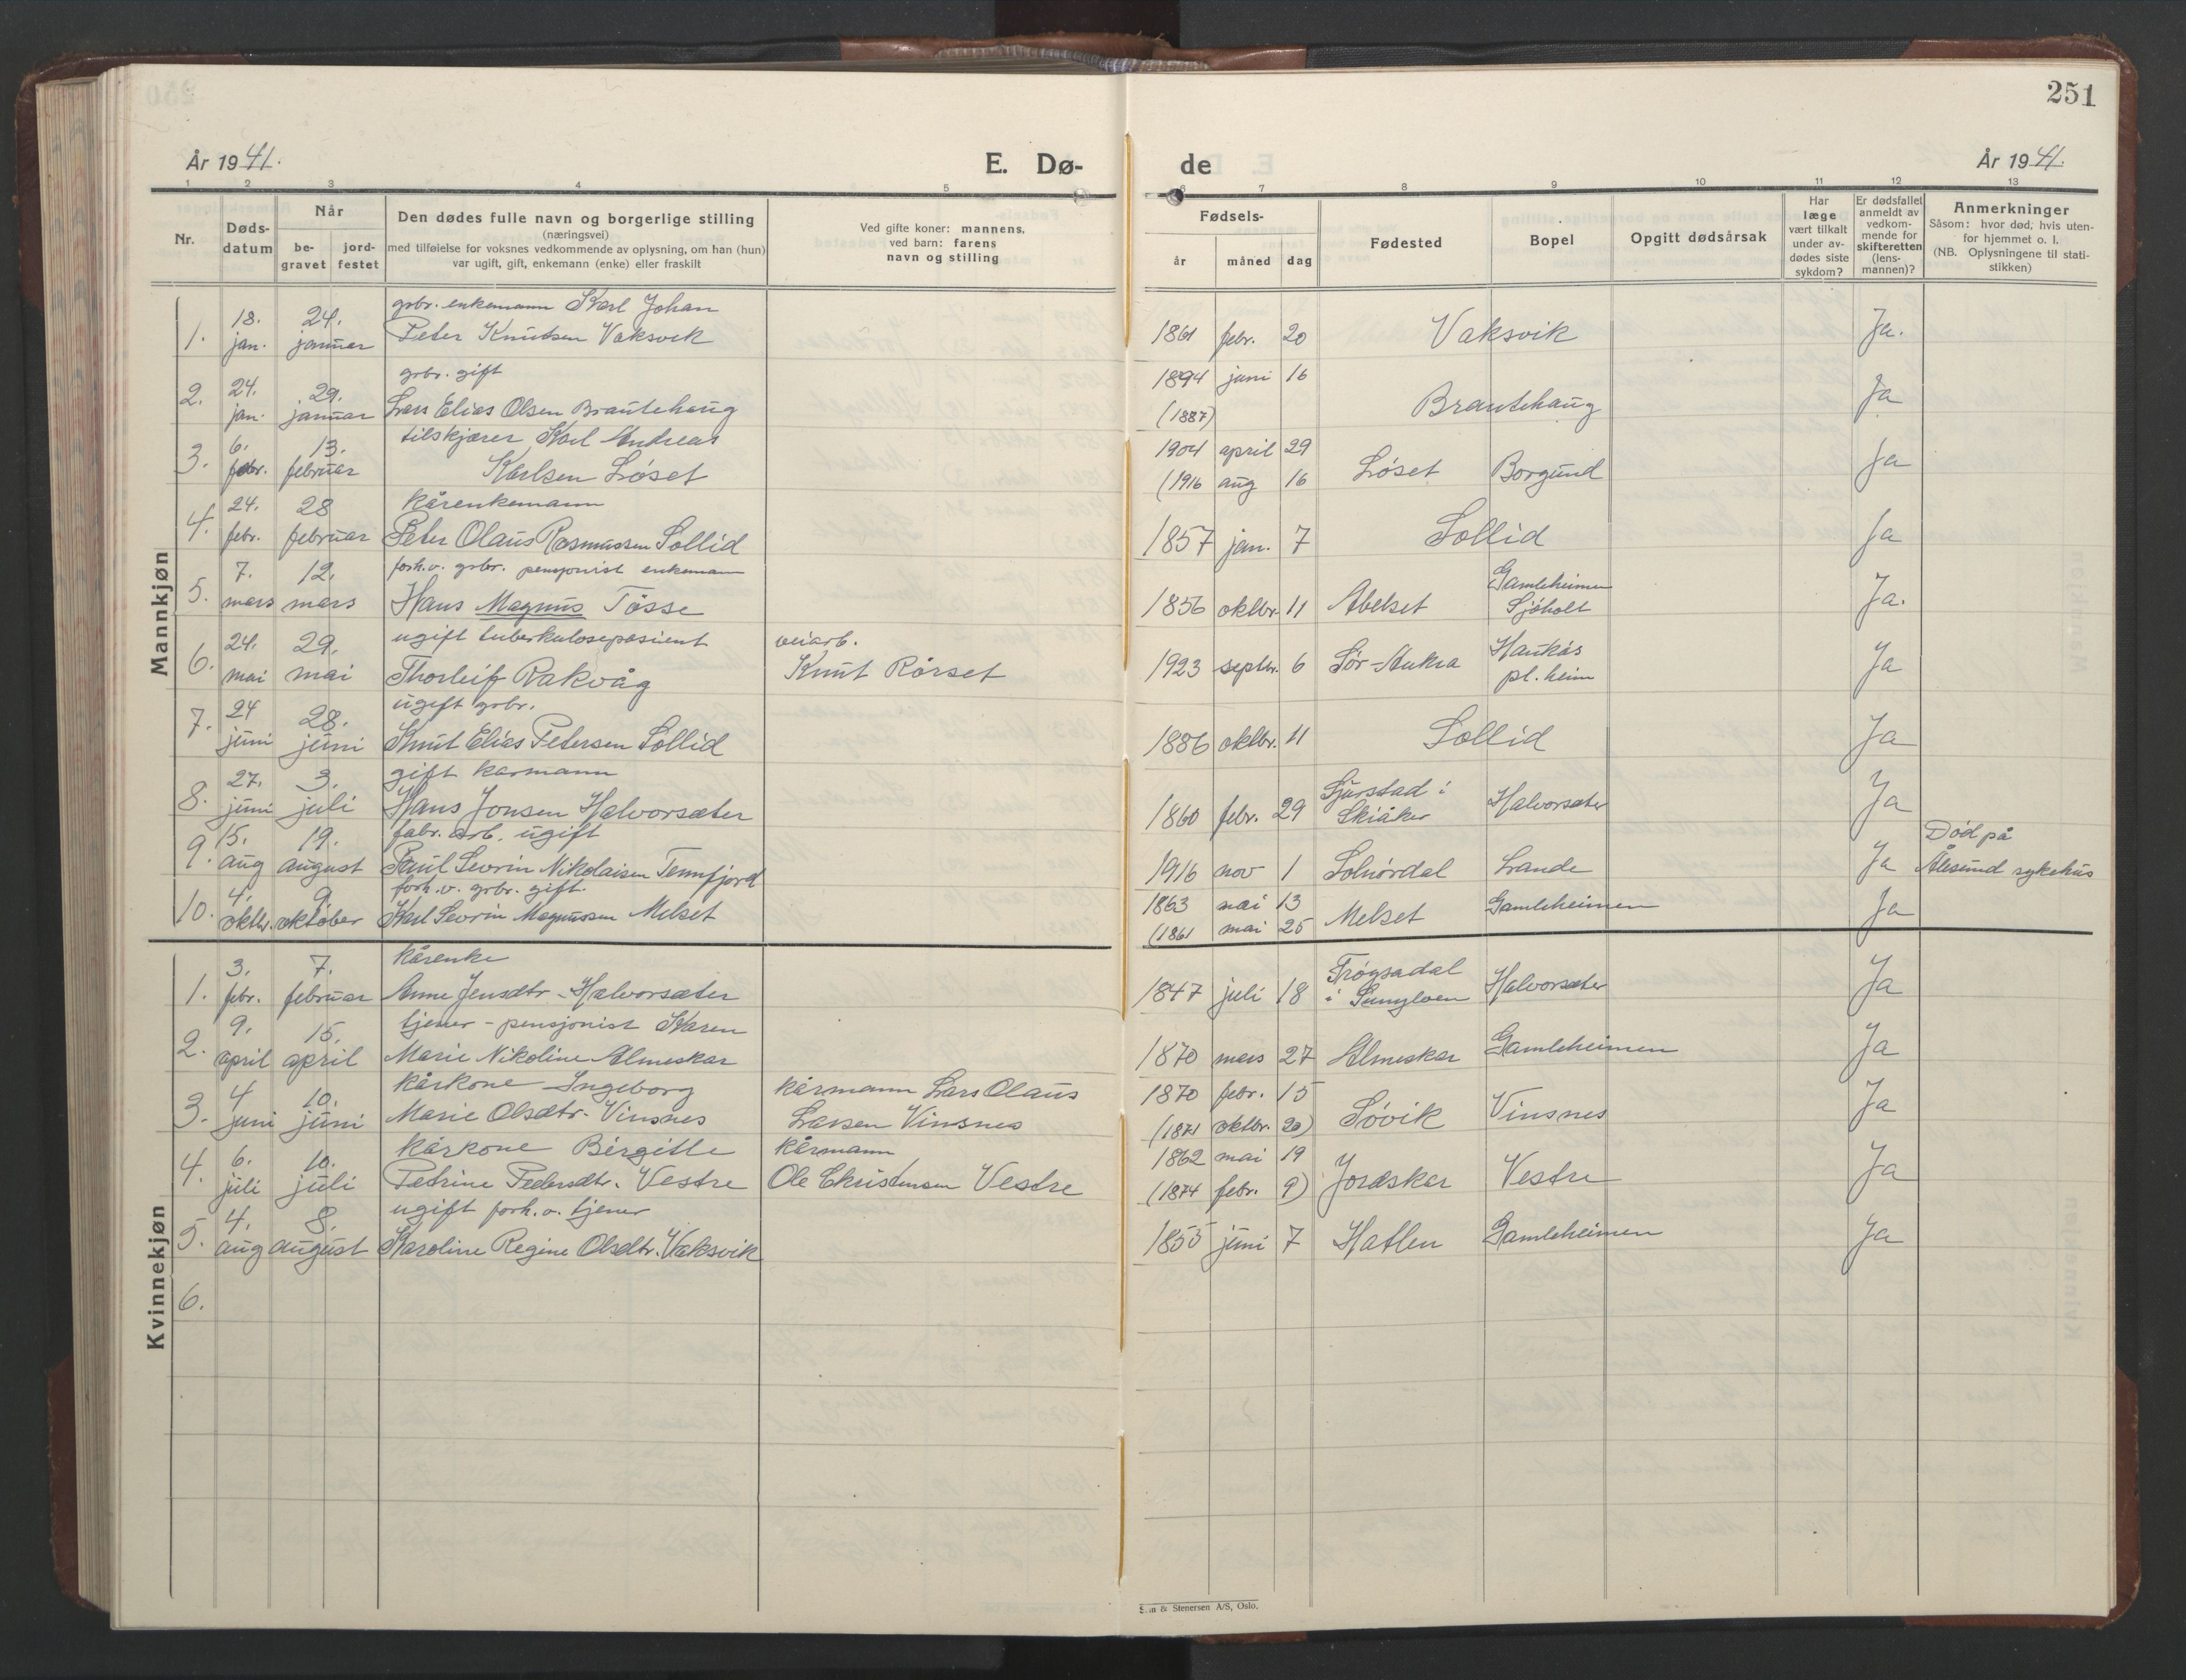 251
År 1941.
E. Dø-
de
År 1941.
1 2 3 4 5 6 7 8 9 10 11 12 13
Nr.
Døds-
datum
Når
be-
gravet
jord-
festet
Den dødes fulle navn og borgerlige stilling
(næringsvei)
med tilføielse for voksnes vedkommende av oplysning, om han (hun)
var ugift, gift, enkemann (enke) eller fraskilt
Ved gifte koner: mannens,
ved barn: farens
navn og stilling
Fødsels-
år måned dag
Fødested
Bopel
Opgitt dødsårsak
Har
læge
vært tilkalt
under av-
dødes siste
sykdom?
Er dødsfallet
anmeldt av
vedkom-
mende for
skifteretten
(lens-
mannen)?
Anmerkninger
Såsom: hvor død, hvis uten-
for hjemmet o. l.
(NB. Oplysningene til stati-
stikken)
Mannkjøn
grbr. enkemann Karl Johan
1. 18. jan. 24. januar Peter Knutsen Vaksvik 1861 febr. 20 Vaksvik Ja.
grbr. gift 1894 juni 16
2. 24. jan. 29. januar Lars Elias Olsen Brautehaug (1887) Brautehaug Ja
tilskjærer Karl Andreas 1904 april 29
3. 6. febr. 13. februar Karlsen Løset (1916 aug 16 Løset Borgund Ja
kårenkemann
4. 24. febr. 28 februar Peter Olaus Rasmussen Sollid 1857 jan. 7 Sollid Ja
forh.v. grbr. pensjonist enkemann Gamleheimen
5. 7. mars 12. mars Hans Magnus Tösse 1856 oktbr. 11 Abelset Sjøholt Ja.
ugift tuberkulosepasient veiarb. Haukås
6. 24. mai 29. mai Thorleif Rakvåg Knut Rörset 1923 septbr. 6 Sør-Aukra pl. heim Ja
ugift grbr.
7. 24 juni 28. juni Knut Elias Petersen Sollid 1886 oktbr. 11 Sollid Ja
gift karmann Sjurstad i
8. 27. juni 3. juli Hans Jonsen Halvorsæter 1860 febr. 29 Skiåker Halvorsæter Ja
fabr. arb. ugift Død på
9. 15. aug 19. august Paul Sevrin Nikolaisen Tennfjord 1916 nov 1 Solnørdal Lande Ja Ålesund sykehus
forh.v. grbr. gift. 1863 mai 13
10. 4. oktbr. 9. oktober Karl Sevrin Magnussen Melset (1861 mai 25 Melset Gamleheimen Ja
Kvinnekjøn
kårenke Frøysadal
1. 3. febr. 7. februar Anne Jensdtr. Halvorsæter 1847 juli 18 i Sunylven Halvorsæter Ja
tjener - pensjonist Karen
2. 9. april 15. april Marie Nikoline Almeskar 1870 mars 27 Almeskar Gamleheimen Ja
kårkone Ingeborg kårmann Lars Olaus 1870 febr. 15
3. 4 juni 10. juni Marie Olsdtr. Vinsnes Larsen Vinsnes (1871 oktbr. 20) Søvik Vinsnes Ja
kårkone Birgitte kårmann 1862 mai 19
4. 6. juli 10. juli Petrine Pedersdtr. Vestre Ole Christensen Vestre (1874 febr. 9) Jordskar Vestre Ja
ugift forh. v. tjener
5. 4. aug 8. august Karoline Regine Olsdtr. Vaksvik 1855 juni 7 Hatlen Gamleheimen Ja
6.
& Stenersen A/S, Oslo.